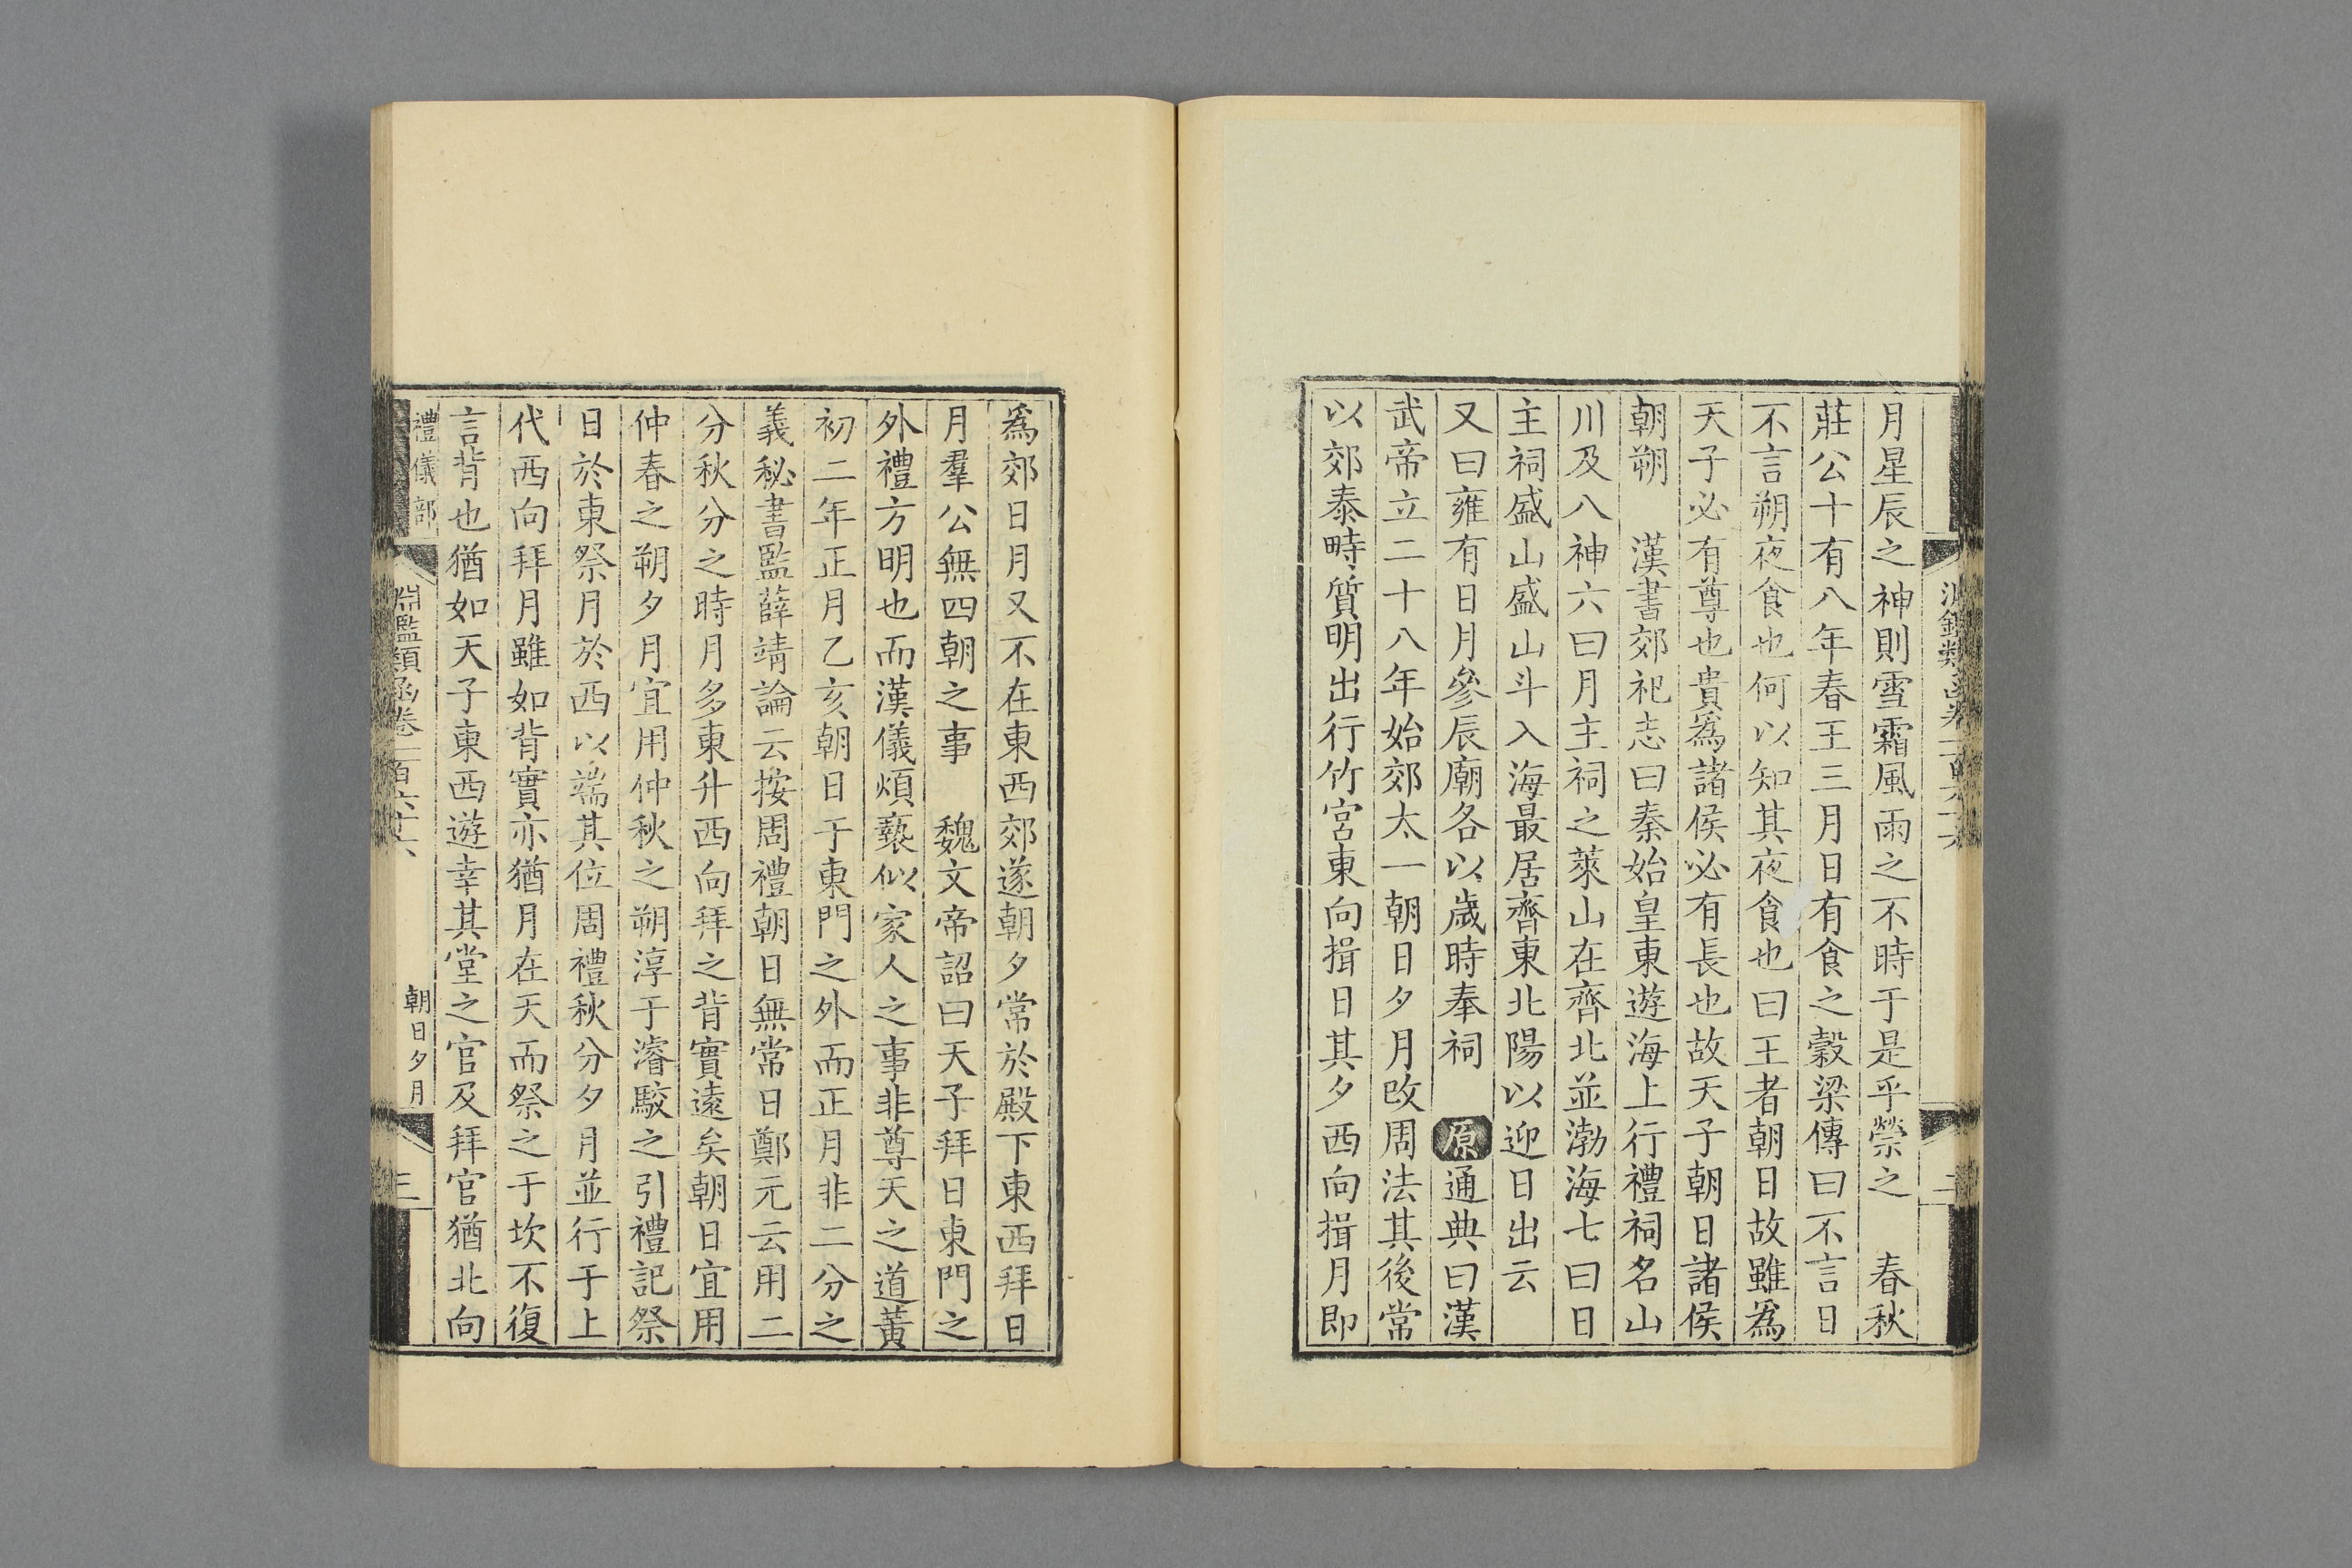 月星辰之神則雪霜風雨之不時于是乎禜之　春秋
莊公十有八年春王三月日有食之穀梁傳曰不言日
不言朔夜食也何以知其夜食也曰王者朝日故雖爲
天子必有尊也貴爲諸侯必有長也故天子朝日諸侯
朝朔　漢書郊祀志曰秦始皇東遊海上行禮祠名山
川及八神六曰月主祠之萊山在齊北並渤海七曰日
主祠盛山盛山斗入海最居齊東北陽以迎日出云
又曰雍有日月參辰廟各以歲時奉祠　原通典曰漢
武帝立二十八年始郊太一朝日夕月改周法其後常
以郊泰畤質明出行竹宮東向揖日其夕西向揖月即
爲郊日月又不在東西郊遂朝夕常於殿下東西拜日
月羣公無四朝之事　魏文帝詔曰天子拜日東門之
外禮方明也而漢儀煩褻似家人之事非尊天之道黃
初二年正月乙亥朝日于東門之外而正月非二分之
義秘書監薛靖論云按周禮朝日無常日鄭元云用二
分秋分之時月多東升西向拜之背實遠矣朝日宜用
仲春之朔夕月宜用仲秋之朔淳于濬駮之引禮記祭
日於東祭月於西以端其位周禮秋分夕月並行于上
代西向拜月雖如背實亦猶月在天而祭之于坎不復
言背也猶如天子東西遊幸其堂之官及拜官猶北向
禮儀部
淵鑑類函卷一百六十六
朝日夕月
三